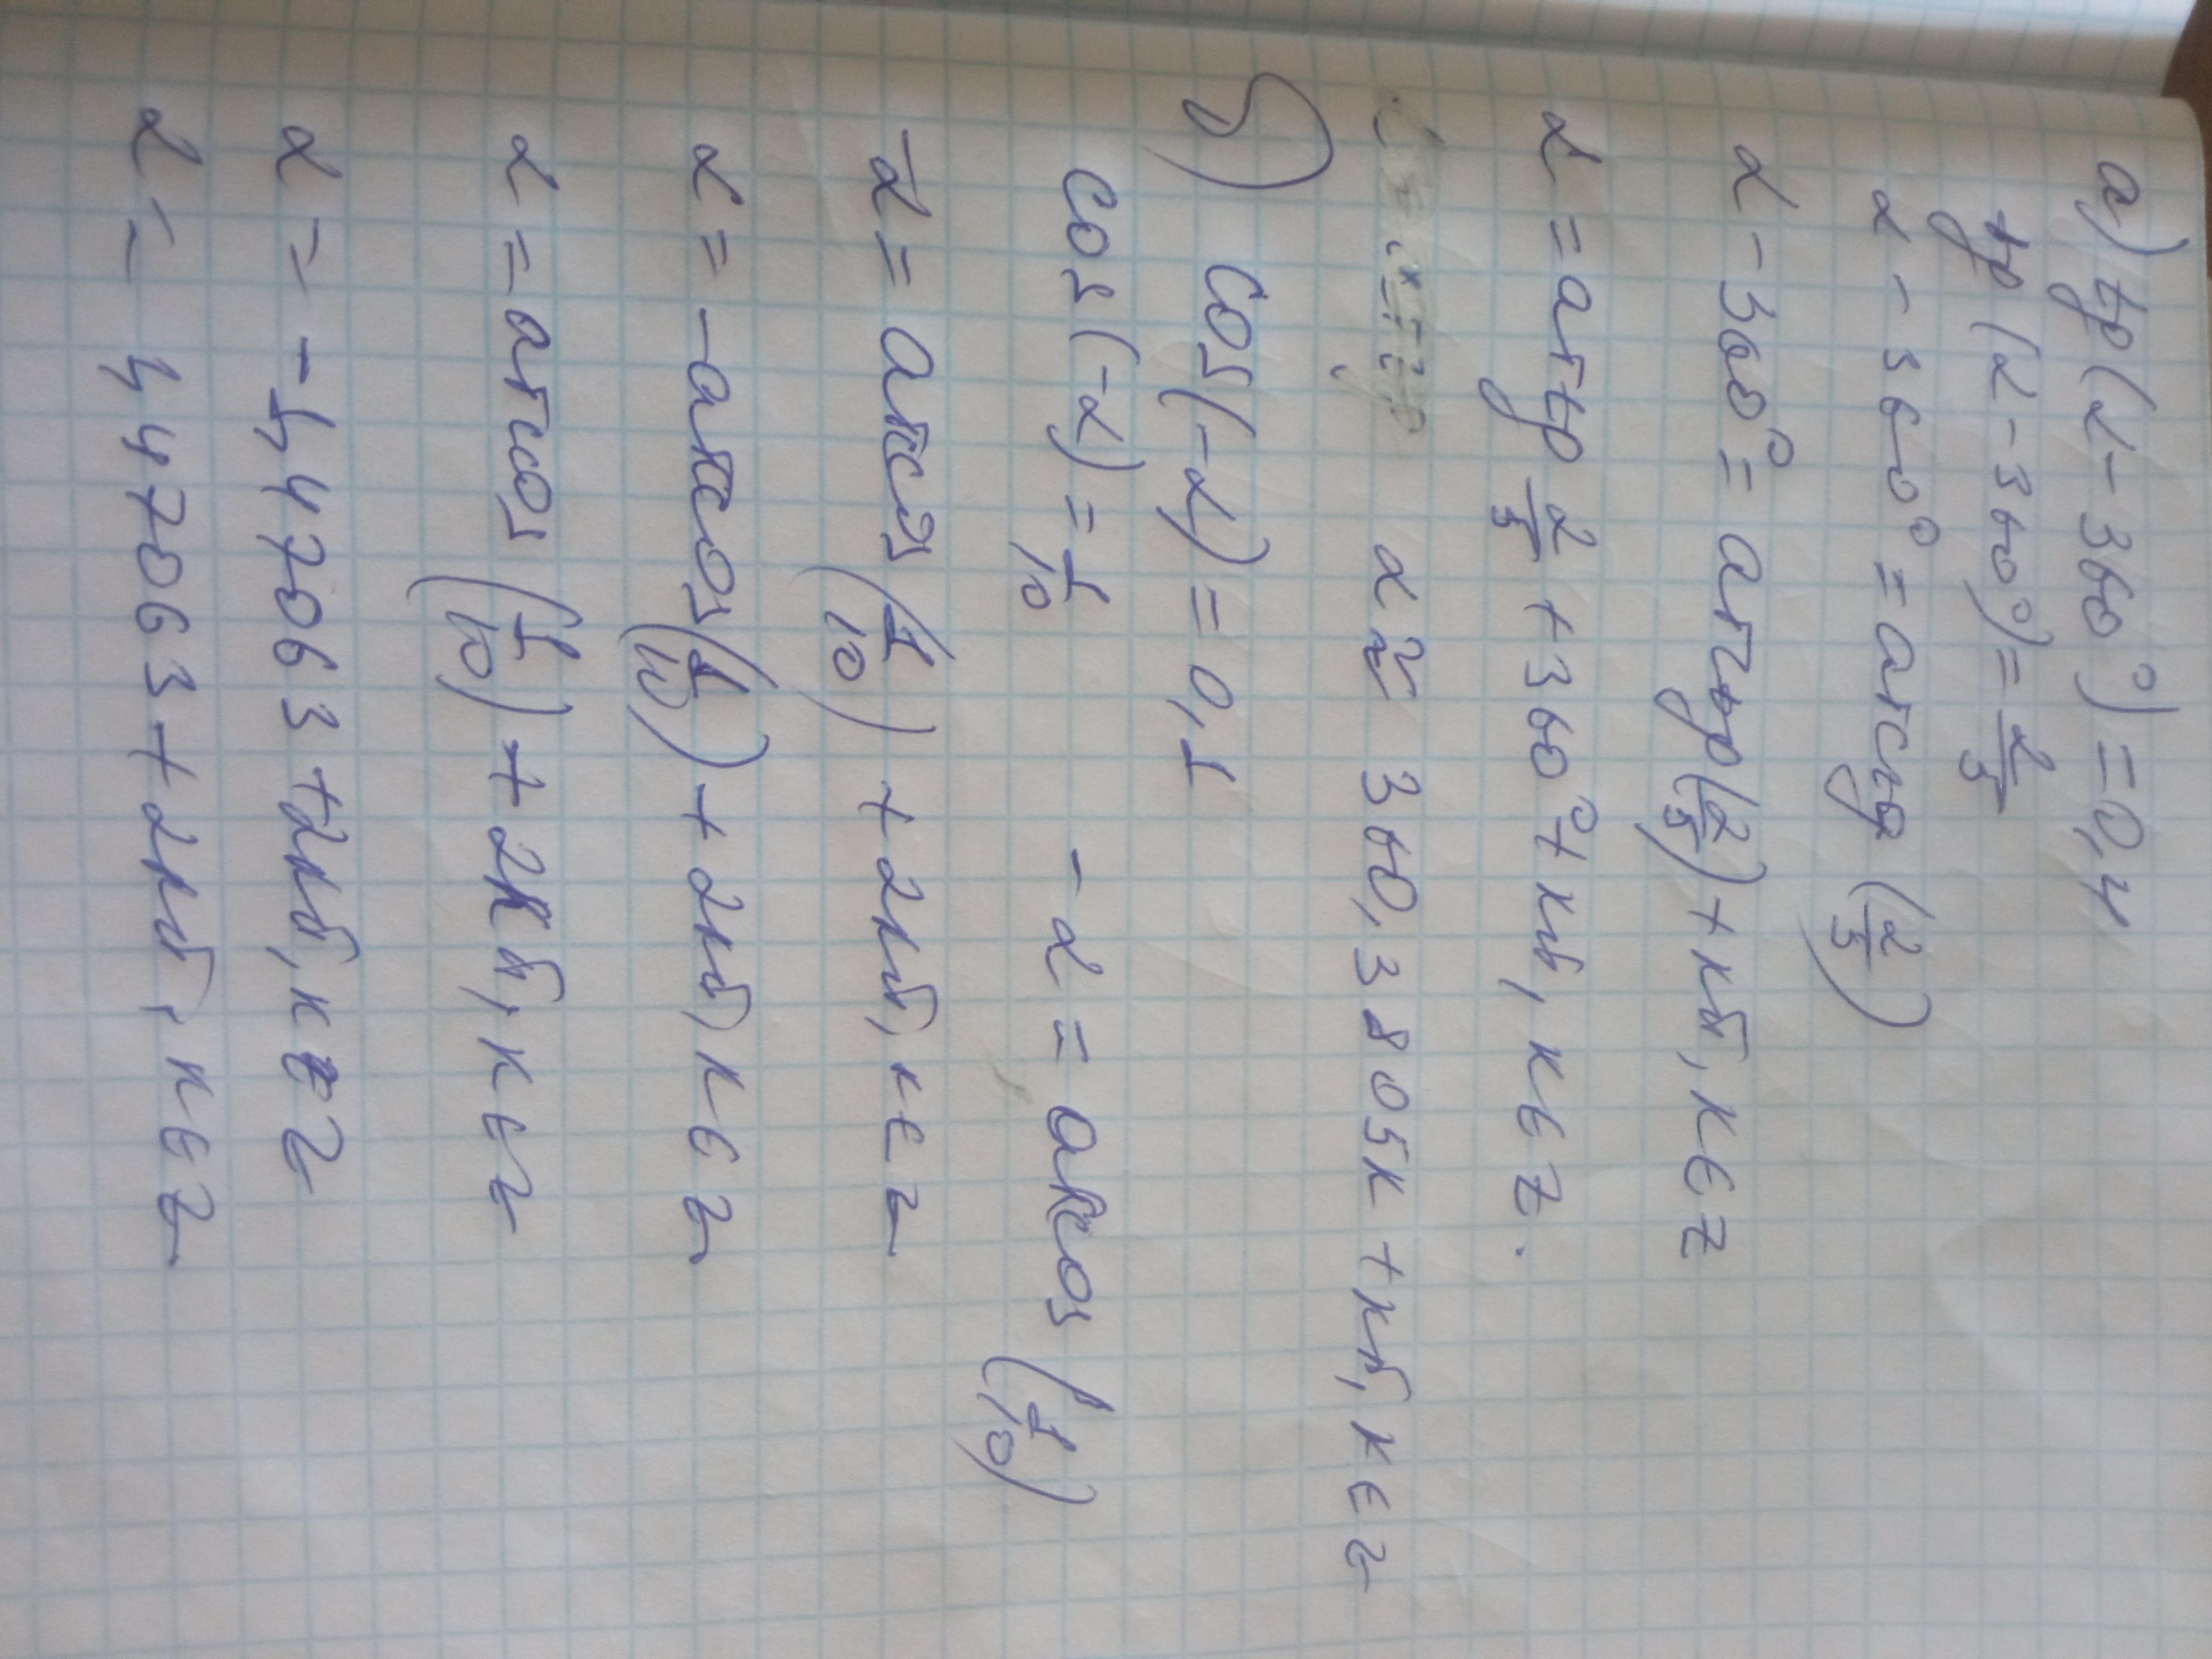 а) tg(α-360°)=0,4
tg(α-360°)=2/5
α-360°=arctg(2/5)
α-360°=arctg(2/5)+kπ, k∈Z
α=arctg 2/5+360°+kπ, k∈Z.
α≈360,3805k+kπ, k∈Z
cos(-α)=0,1
cos(-α)=1/10 -α=arccos(1/10)
-α=arccos(1/10)+2kπ, k∈Z
α=-arccos(1/10)+2kπ, k∈Z
α=arccos(1/10)+2kπ, k∈Z
α=-1,47063+2kπ, k∈Z
α=1,47063+2kπ, k∈Z